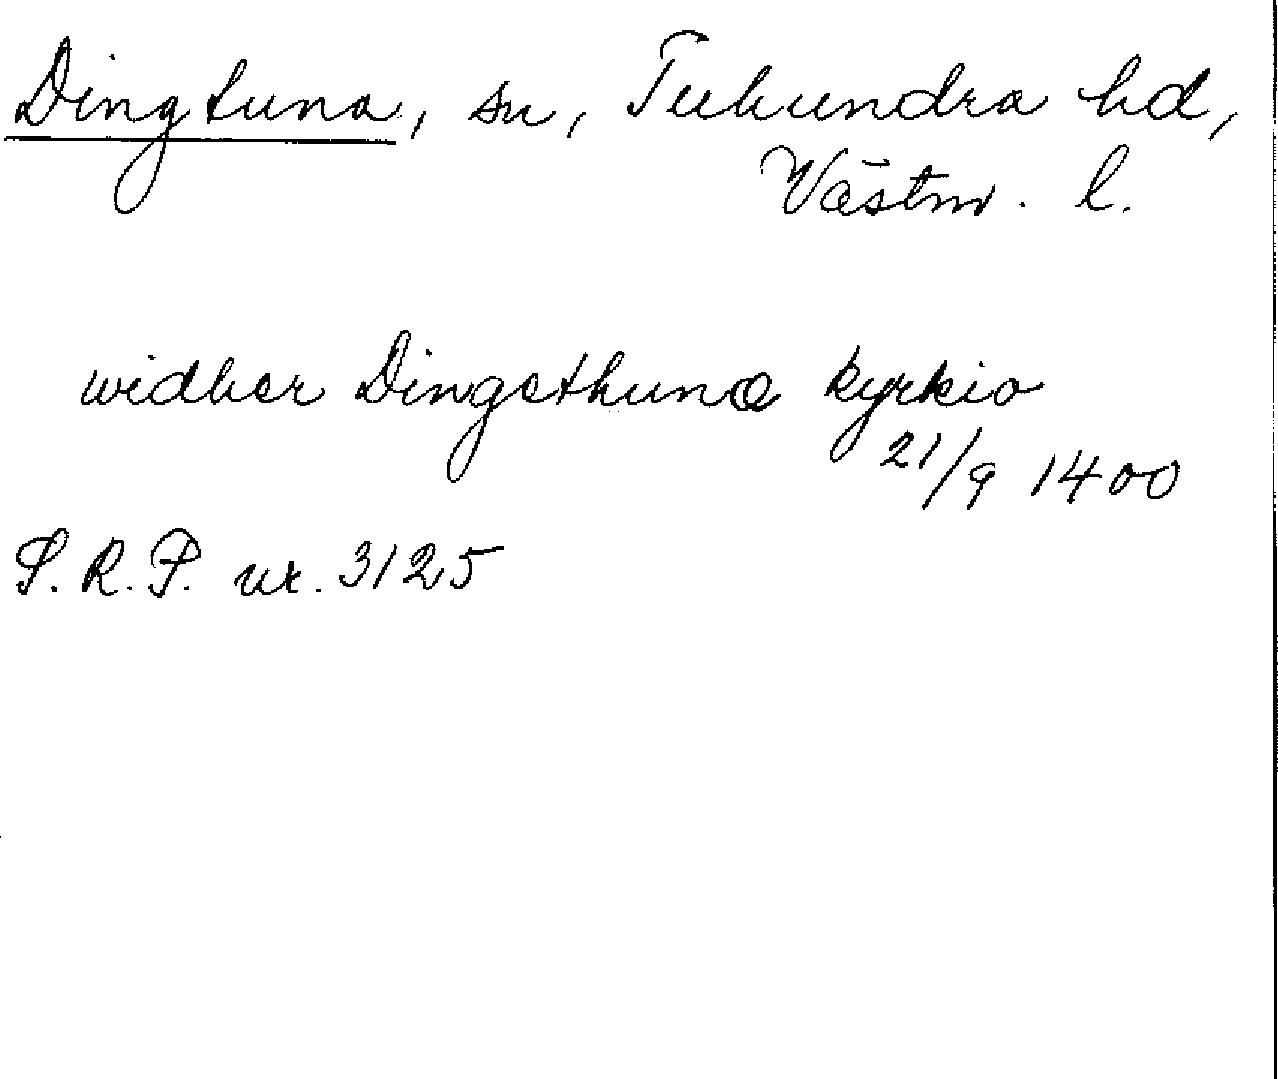 Dingtuna, sn, Tuhundra hd,
Västm. l.
widher Dingethuna kyrkio
21/9 1400
S.R.P. nr. 3125